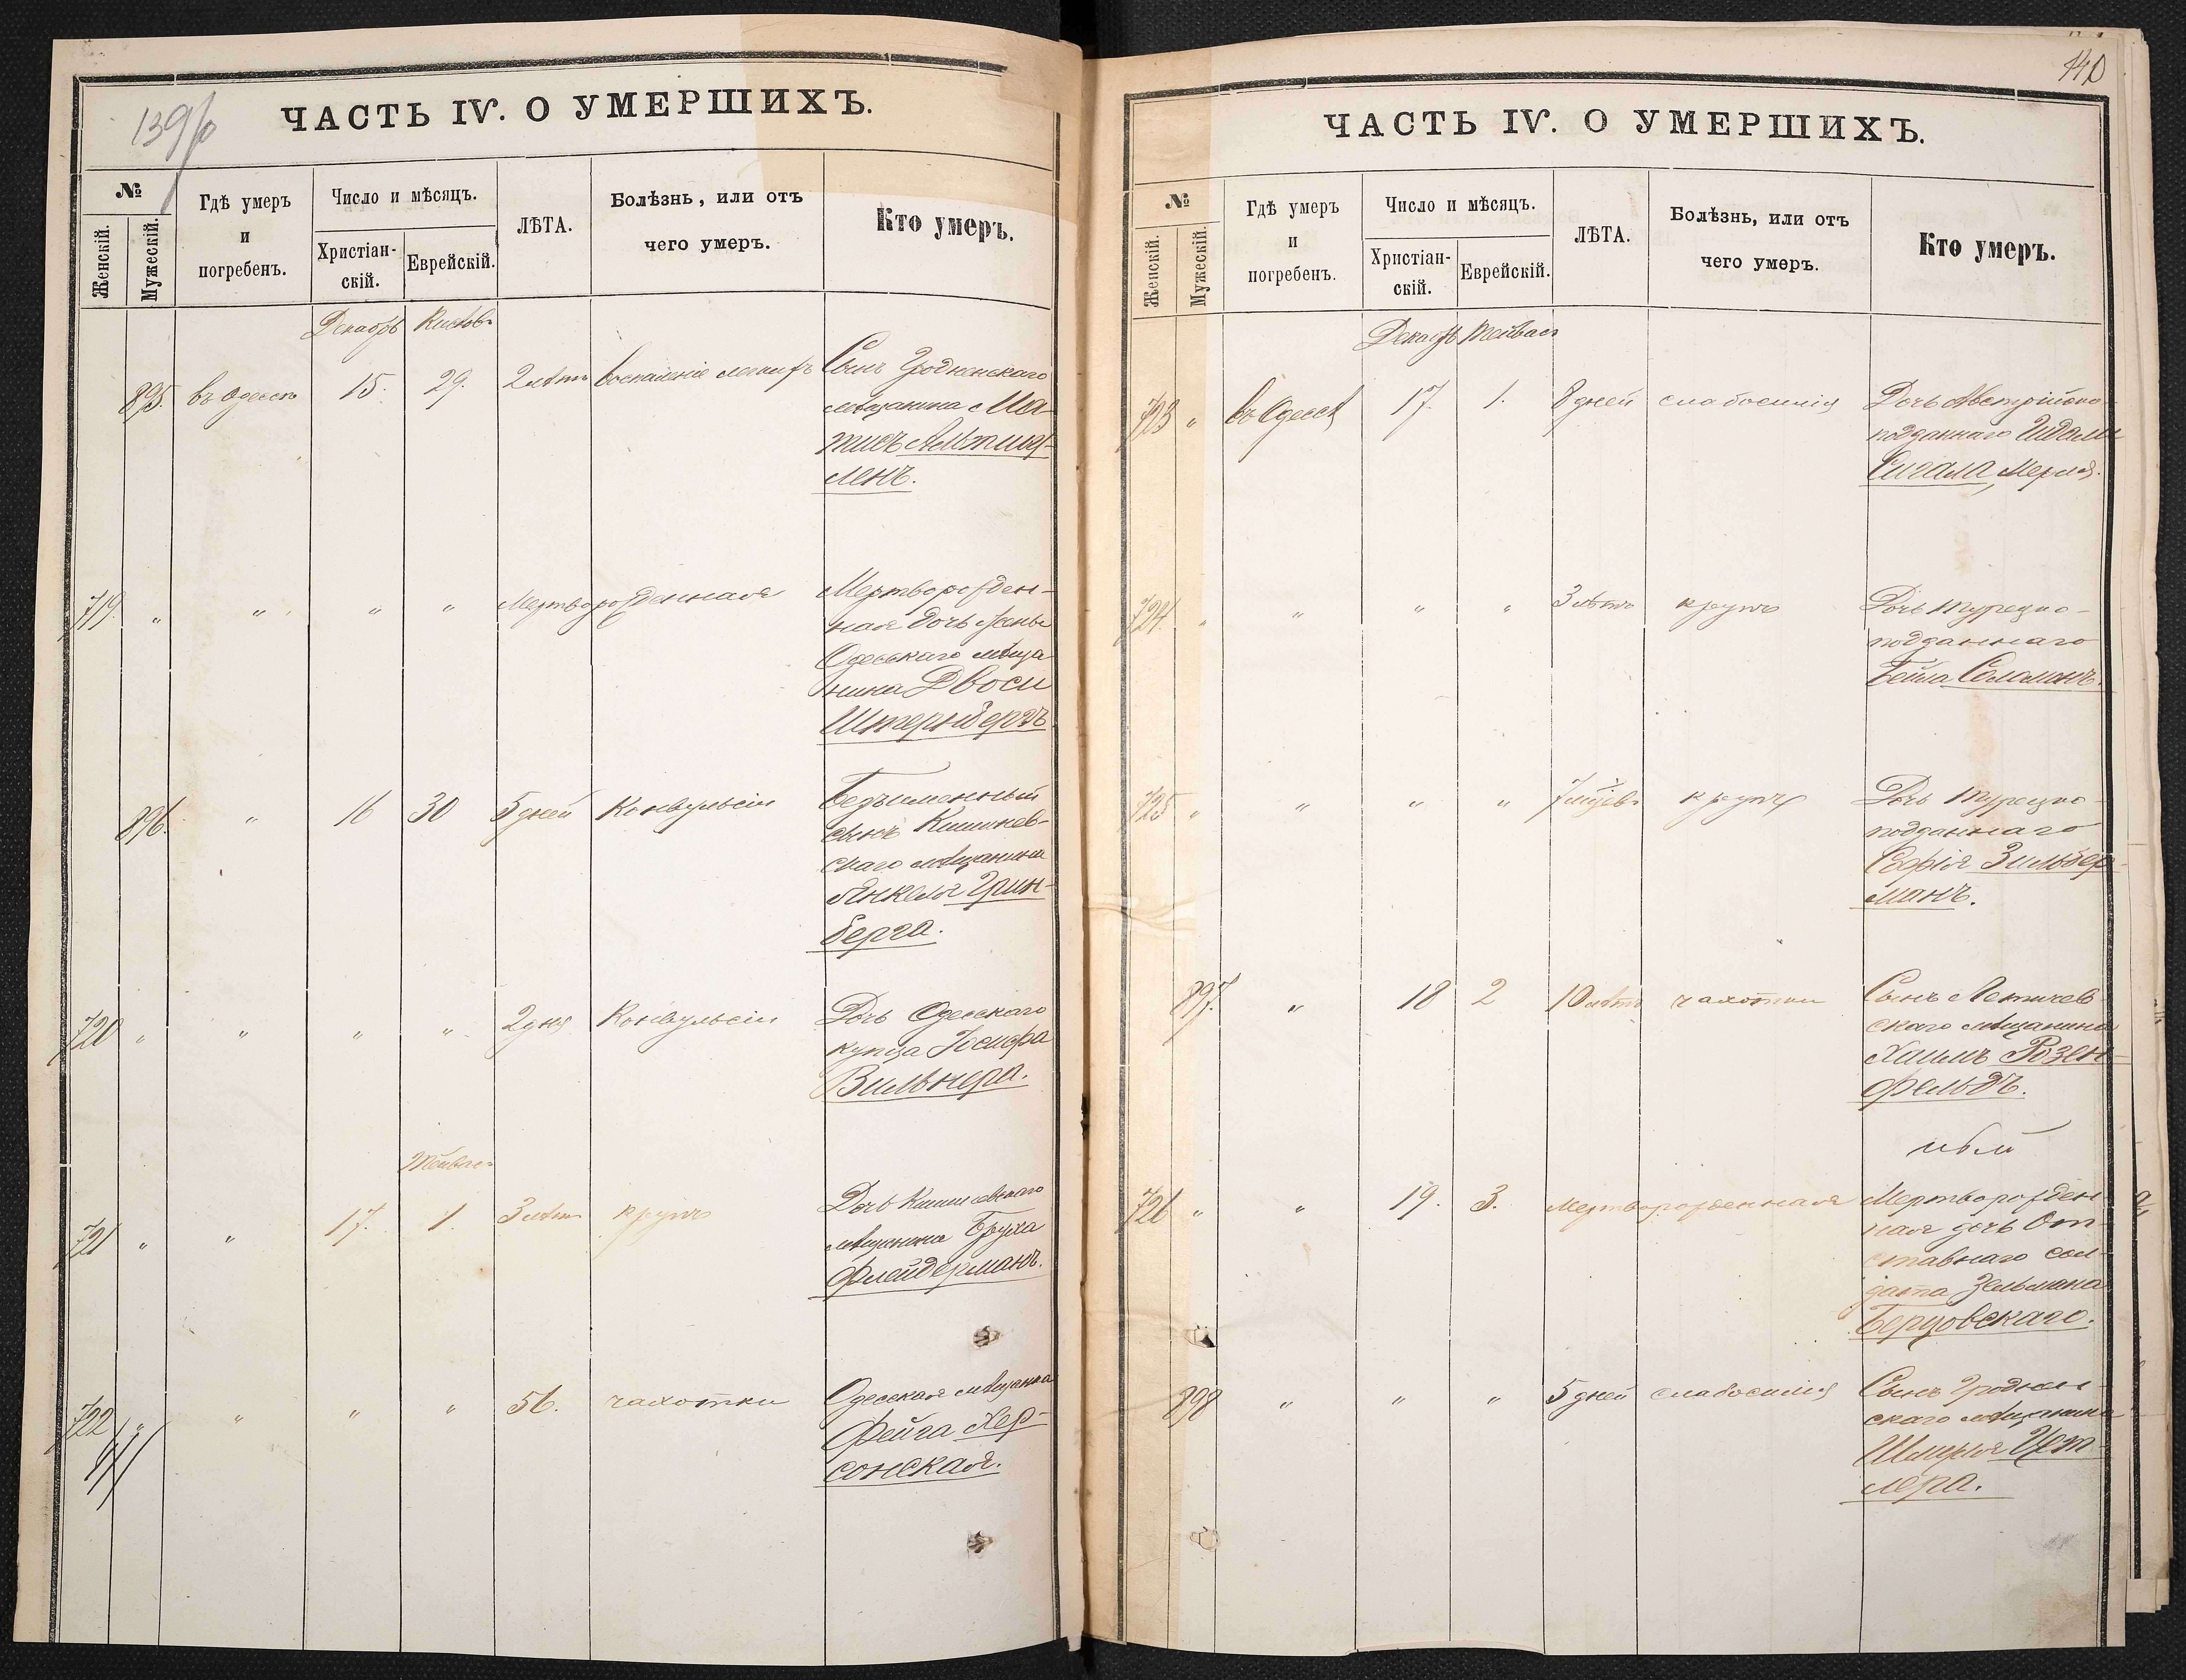 139/о
ЧАСТЬ IV. О УМЕРШИХЪ.
№
Женскій.
Мужескій.
Гдѣ умеръ
и
погребенъ.
Число и мѣсяцъ.
Христіан-
скій.
Еврейскій.
ЛѢТА.
Болѣзнь, или отъ
чего умеръ.
Кто умеръ.
Декабрь Кислев
895. въ Одессѣ 15. 29. 2 лѣтъ воспаленіе легкихъ Сынъ Гродненскаго
мѣщанина Ма-
тисъ
ленъ.
719. " " " " Мертворожденная Мертворожден-
ная дочь жены
Одесскаго мѣща
нина Двоси
Штернбергъ
896. " 16 30 5 дней Конвульсіи Безъименный
сынъ Кишинев-
скаго мѣщанина
Янкеля Грин-
берга.
720 " " " " 2 дня Конвульсіи Дочь Одесскаго
купца Іосифа
Вильнера.
Тейвас
721 " " 17. 1. 3 лѣтъ крупъ Дочь Кишиневскаго
мѣщанина Бруха
Флейдерманъ.
722 " " " " 56. чахотки Одесская мѣщанка
Фейга Хер-
сонская.
140
ЧАСТЬ IV. О УМЕРШИХЪ.
№
Женскій.
Мужескій.
Гдѣ умеръ
и
погребенъ.
Число и мѣсяцъ.
Христіан-
скій.
Еврейскій.
ЛѢТА.
Болѣзнь, или отъ
чего умеръ.
Кто умеръ.
Декабрь Тейвас
723 " въ Одессѣ 17. 1. 8 дней слабосилія Дочь Австрійско-
подданнаго
Сигала, Мерля.
724. " " " " 3 лѣтъ крупъ Дочь турецко-
подданнаго
Бейла Соломонъ.
725 " " " " 7 мѣсяцев крупъ Дочь турецко-
подданнаго
Софія Зильбер-
манъ.
897. " 18 2 10 лѣтъ чахотки Сынъ Летичев-
скаго мѣщанина
Хаимъ Розен-
фельдъ.
ный
726 " " 19. 3. Мертворожденная Мертворожден
ная дочь От-
ставнаго сол-
дата Зельмана
Берговскаго.
898 " " " 5 дней слабосилія Сынъ Гроднен-
скаго мѣщанина
Шмерля Цет-
лера.